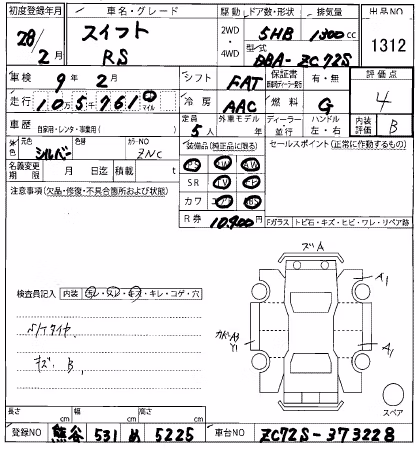 初度登録年月 車名・グレード 駆動 ドア数・形状 排気量 出品NO
28/2月 スイフト RS 2WD・4WD 5HB 1300cc 1312
型式 DBA-ZC72S
車検 9年2月 シフト FAT 保証書 有・無 評価点 4
走行 10万5千761 マイル 冷房 AAC 燃料 G
車歴 自家用・レンタ・事業用( ) 定員 5人 外車モデル 年 ディーラー 並行 ハンドル 左・右 内装評価 B
元色 シルバー 色替 カラーNO ZNC
装備品(純正品に限る) セールスポイント(正常に作動するもの)
名義変更期限 月 日迄 積載 t
PS PW
SR TV
カワ AB
R券 10,900円
注意事項(欠品・修復・不具合箇所および状態)
Fガラス トビ石・キズ・ヒビ・ワレ・リペア跡
検査員記入 内装 汚レ・スレ・キズ・キレ・コゲ・穴
キズ B
ズA
A1
Y1
A1
スペア
長さ cm 幅 cm 高さ cm
登録NO 熊谷 531 め 5225 車台NO ZC72S-373228